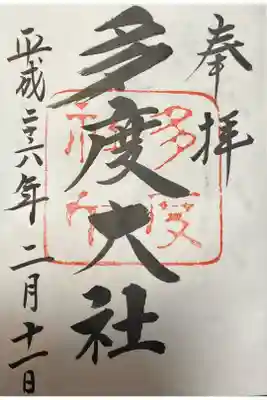 奉拝
多度大社
平成二十六年二月十一日